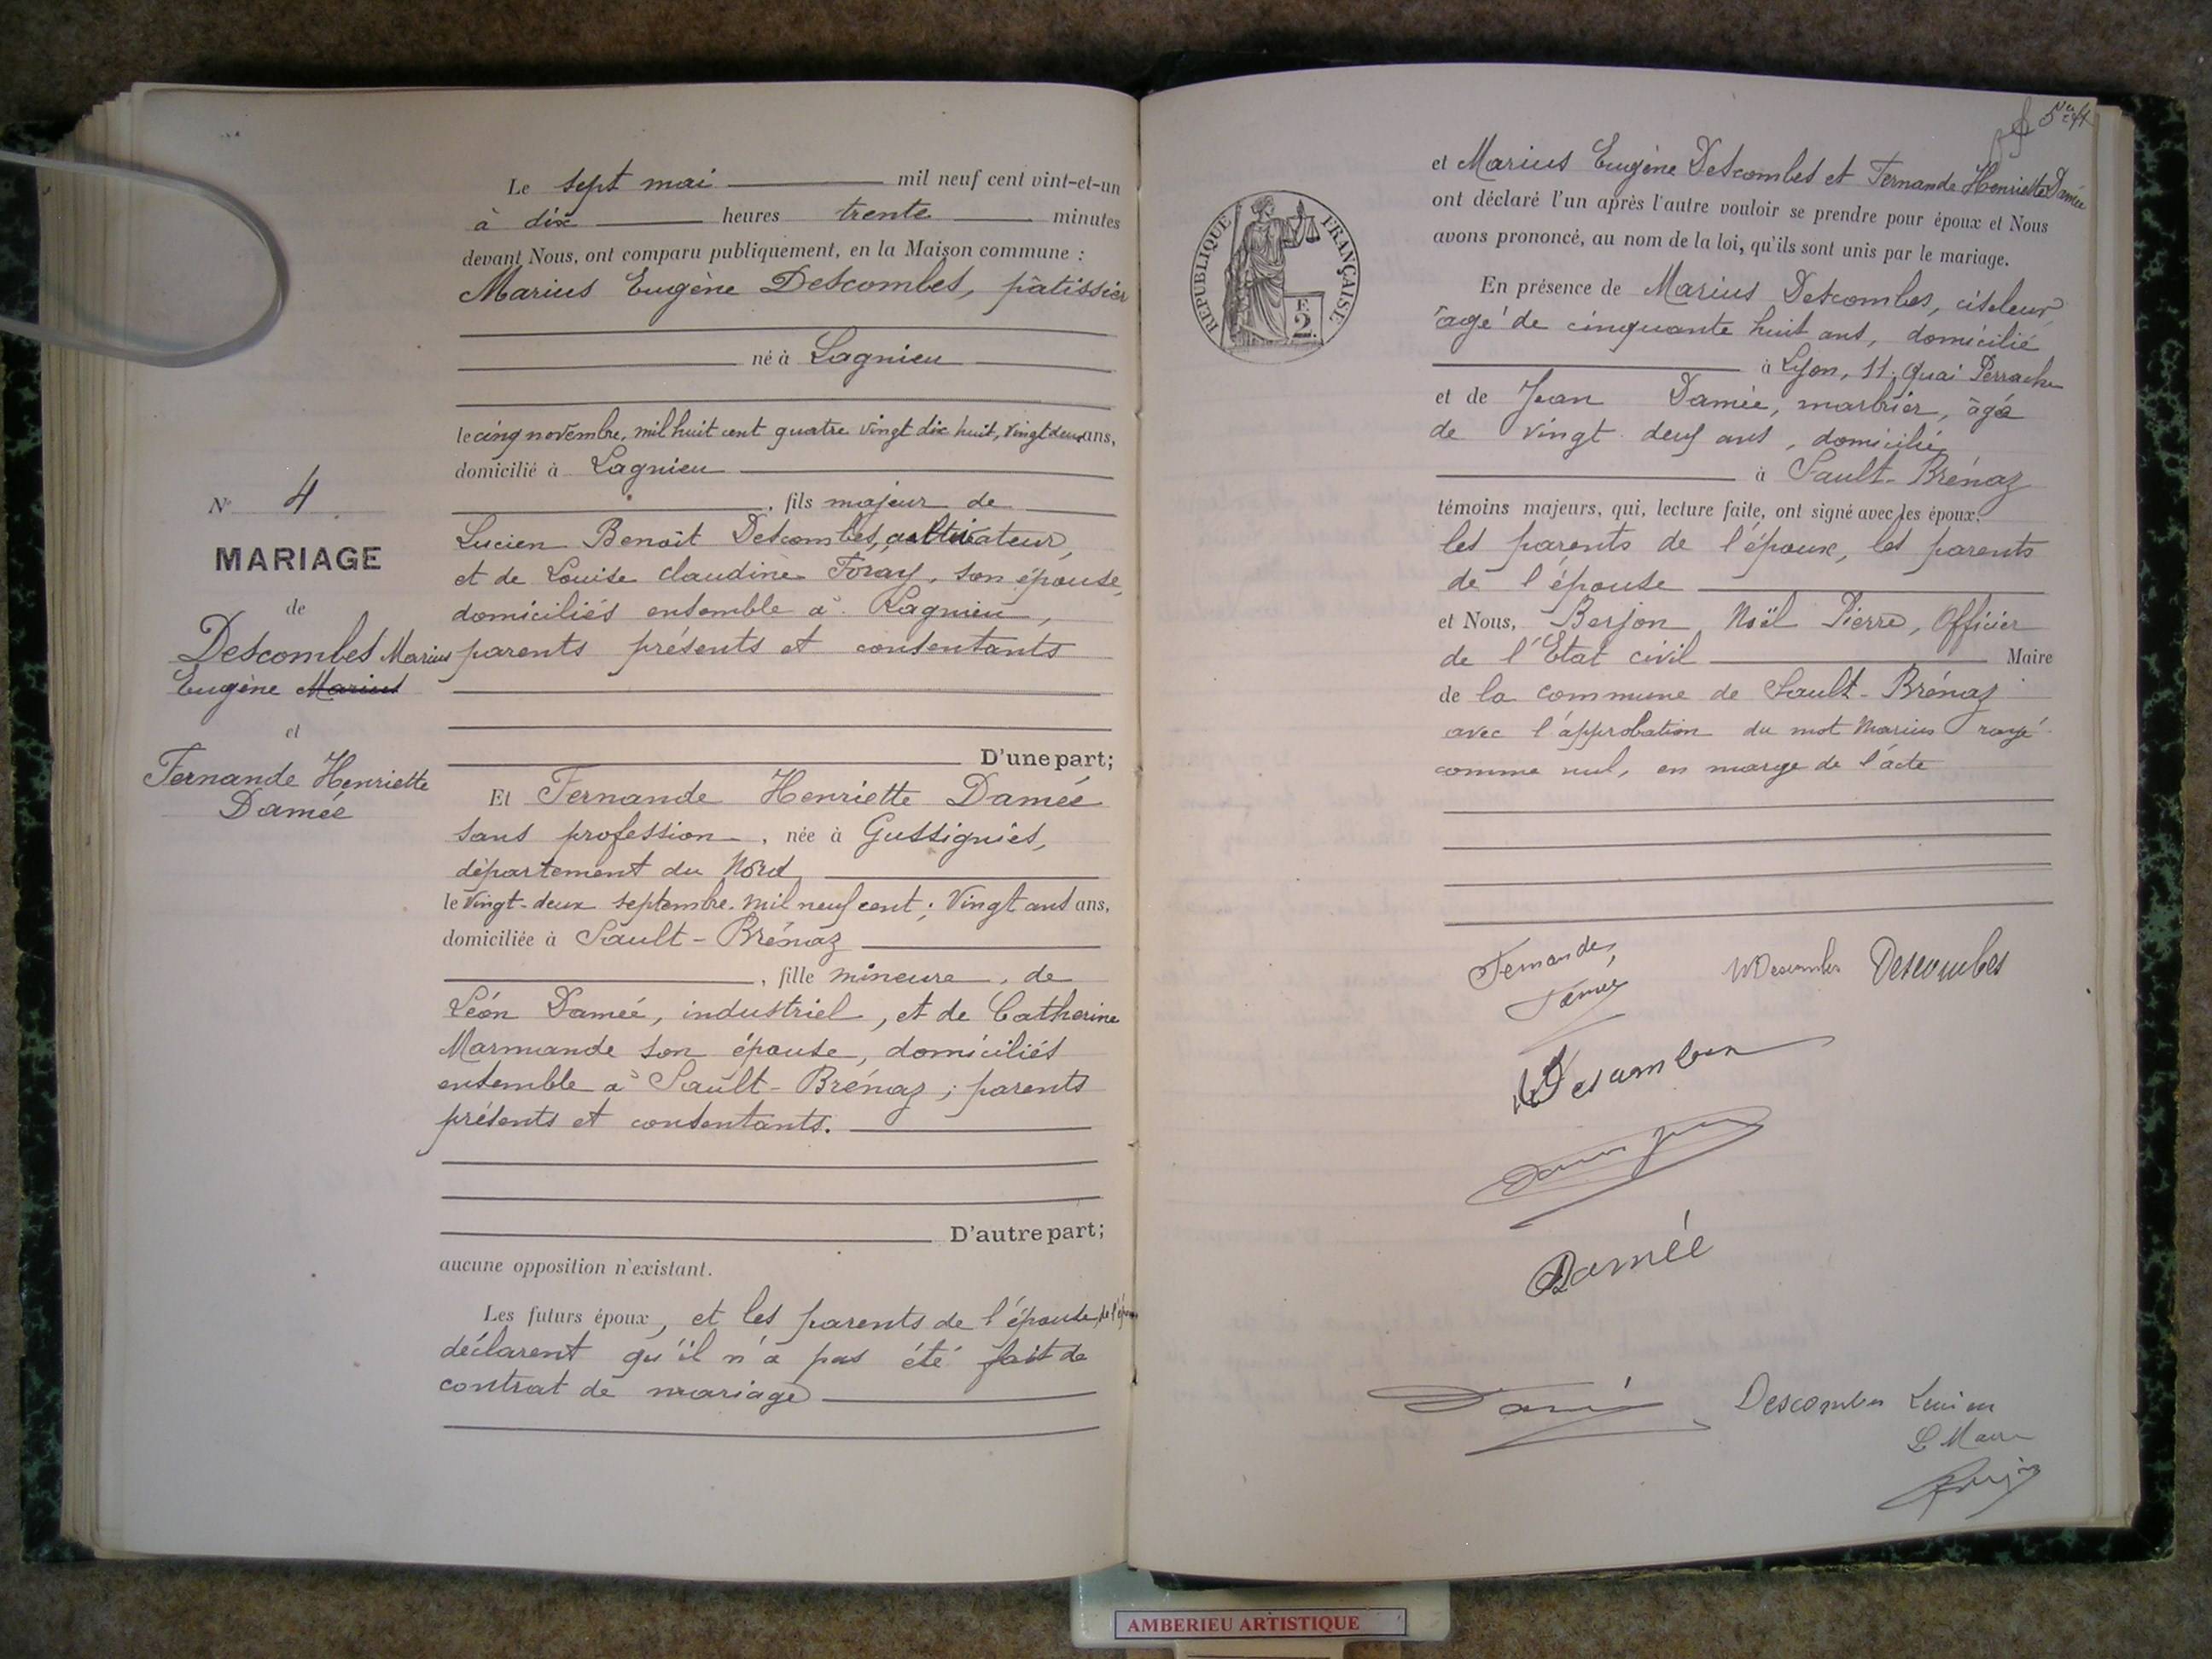 Le sept mai mil neuf cent vint-et-un
à dix heures trente minutes
devant Nous, ont comparu publiquement, en la Maison commune :
Marius Eugène Descombes, pâtissier
né à Lagnieu
le cinq novembre, mil huit cent quatre vingt dix huit, vingt deux ans,
domicilié à Lagnieu
, fils majeur de
Lucien Benoit Descombes, cultivateur,
et de Louise Claudine Foray, son épouse,
domiciliés ensemble à Lagnieu,
parents présents et consentants
D'une part;
N° 4
MARIAGE
de
Descombes Marius
Eugène Marius
et
Fernande Henriette
Damée
Et Fernande Henriette Damée
sans profession, née à Gussignies,
département du Nord
le vingt-deux septembre mil neuf cent ; vingt ans ans,
domiciliée à Sault-Brénaz
, fille mineure, de
Léon Damée, industriel, et de Catherine
Marmande son épouse, domiciliés
ensemble à Sault-Brénaz ; parents
présents et consentants.
D'autre part;
aucune opposition n'existant.
Les futurs époux, et les parents de l'épouse,
déclarent qu'il n'a pas été fait de
contrat de mariage
REPUBLIQUE FRANÇAISE
2
et Marius Eugène Descombes et Fernande Henriette Damée
ont déclaré l'un après l'autre vouloir se prendre pour époux et Nous
avons prononcé, au nom de la loi, qu'ils sont unis par le mariage.
En présence de Marius Descombes, ciseleur,
âgé de cinquante huit ans, domicilié
à Lyon, 11, quai Perrache
et de Jean Damée, marbrier, âgé
de vingt deux ans, domicilié
à Sault-Brénaz
témoins majeurs, qui, lecture faite, ont signé avec les époux,
les parents de l'époux, les parents
de l'épouse
et Nous, Berjon Noël Pierre, Officier
de l'Etat civil Maire
de la commune de Sault-Brénaz
avec l'approbation du mot Marius rayé
comme nul, en marge de l'acte
Fernande Damée
MDescombes Descombes
Descombes
Damée
Damée
Descombes Lucien
Le Maire
Berjon
AMBERIEU ARTISTIQUE